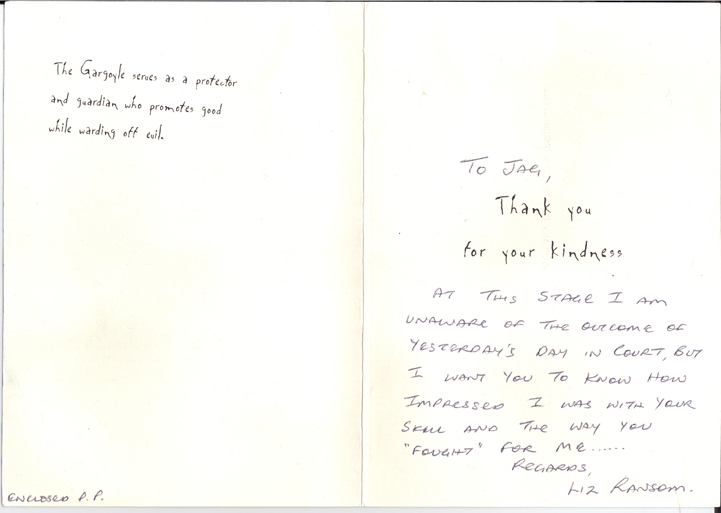 The Gargoyle serves as a protector
and guardian who promotes good
while warding off evil.
ENCLOSED P.P.
TO JAG,
Thank you
for your kindness
AT THIS STAGE I AM
UNAWARE OF THE OUTCOME OF
YESTERDAY'S DAY IN COURT, BUT
I WANT YOU TO KNOW HOW
IMPRESSED I WAS WITH YOUR
SKILL AND THE WAY YOU
"FOUGHT" FOR ME......
REGARDS,
LIZ RANSOM.